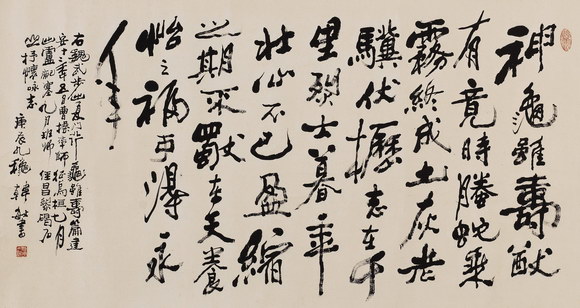 神龜雖壽猷
有竟時騰蛇乘
霧終成土灰老
驥伏櫪志在千
里烈士暮年
壯心不已盈縮
之期不獨在天養
怡之福可得永
年
右魏武步出夏門行龜雖壽篇建
安十二年五月曹操率師征烏桓七月
出盧龍塞九月班師昌黎碣石
抒懷詠志
庚辰九秋韓敏書